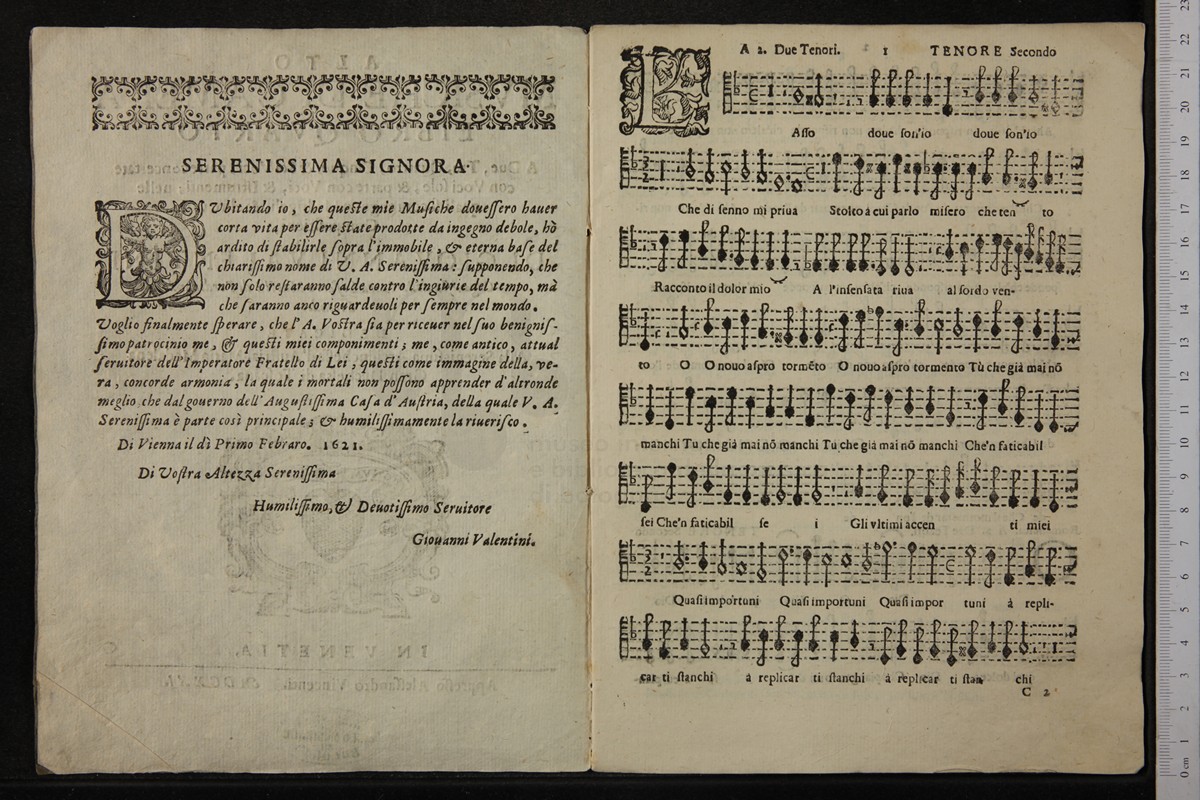 SERENISSIMA SIGNORA.
DVbitando io, che queste mie Musiche douessero hauer
corta vita per essere state prodotte da ingegno debole, hò
ardito di stabilirle sopra l'immobile, & eterna base del
chiarissimo nome di V. A. Serenissima: supponendo, che
non solo restaranno salde contro l'ingiurie del tempo, mà
che saranno anco riguardeuoli per sempre nel mondo.
Voglio finalmente sperare, che l'A. Vostra sia per riceuer nel suo benignis-
simo patrocinio me, & questi miei componimenti; me, come antico, attual
seruitore dell'Imperatore Fratello di Lei, questi come immagine della, ve-
ra, concorde armonia, la quale i mortali non possono apprender d'altronde
meglio, che dal gouerno dell'Augustissima Casa d'Austria, della quale V. A.
Serenissima è parte così principale; & humilissimamente la riuerisco.
Di Vienna il dì Primo Febraro. 1621.
Di Vostra Altezza Serenissima
Humilissimo, & Deuotissimo Seruitore
Giouanni Valentini.
A 2. Due Tenori. 1 TENORE Secondo
LAsso doue son'io doue son'io
Che di senno mi priua Stolto à cui parlo misero che ten to
Racconto il dolor mio A l'insensata riua al sordo ven-
to O O nouo aspro tormẽto O nouo aspro tormento Tù che già mai nõ
manchi Tu che già mai nõ manchi Tu che già mai nõ manchi Che'n faticabil
sei Che'n faticabil se i Gli vltimi accen ti miei
Quasi importuni Quasi importuni Quasi impor tuni à repli-
car ti stanchi à replicar ti stanchi à replicar ti stan chi
C 2